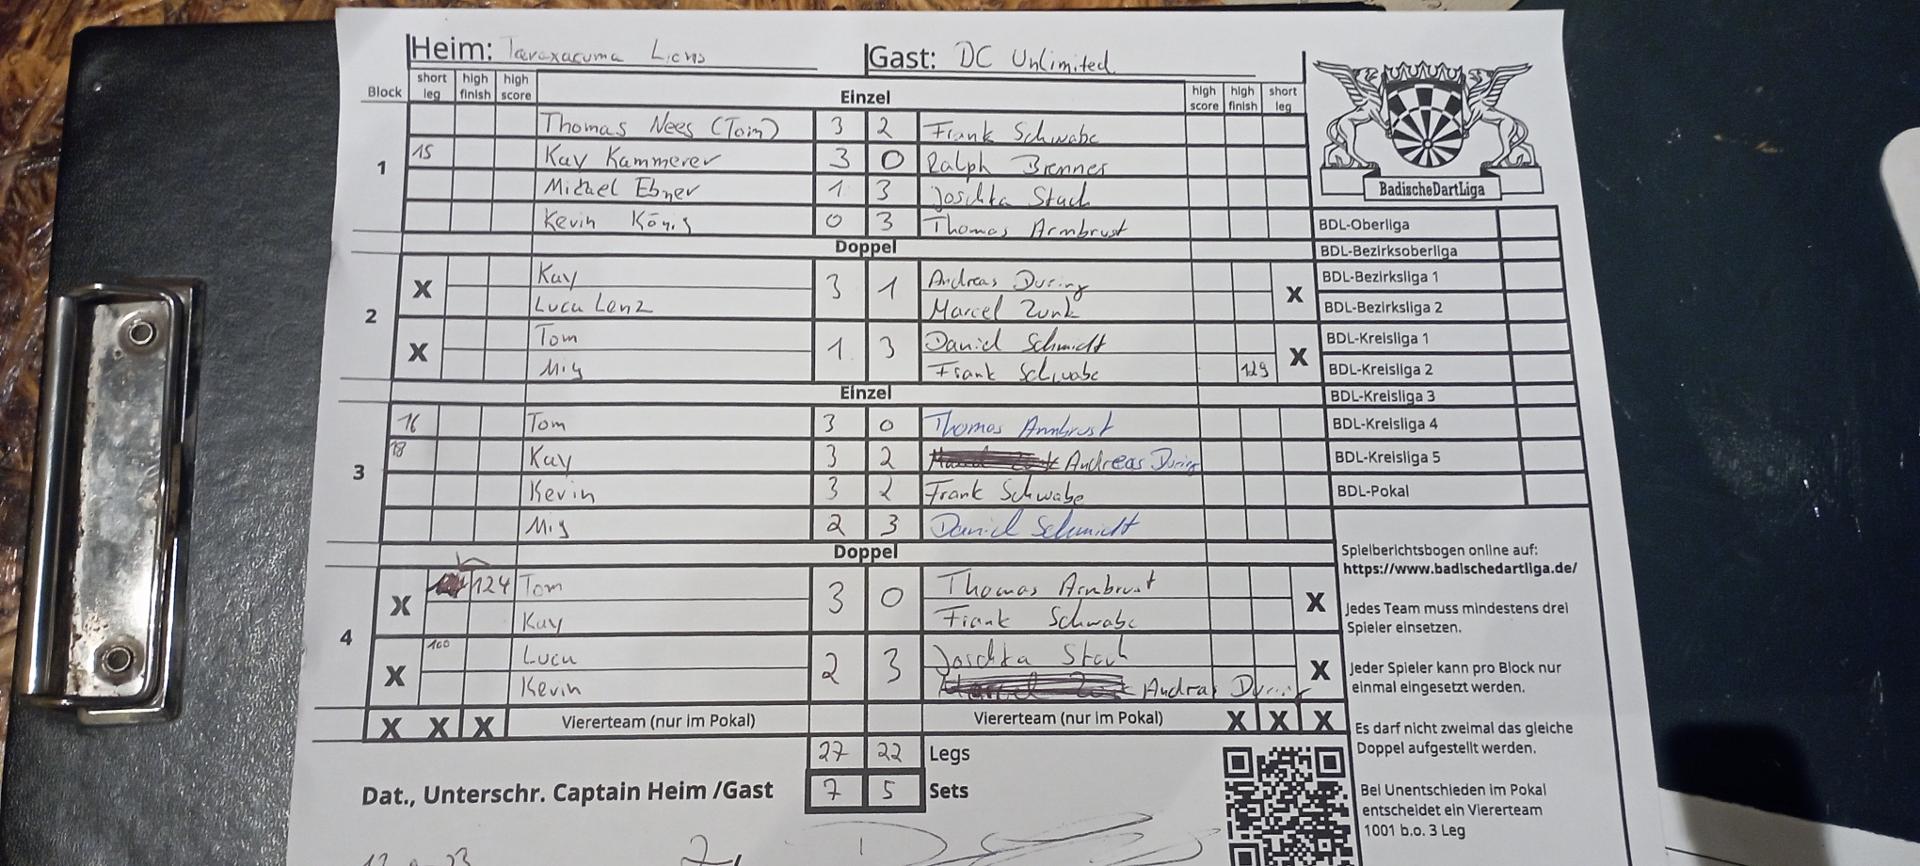 Heim: Taraxacuma Lions Gast: DC Unlimited
Block short leg high finish high score Einzel high score high finish short leg
1
Thomas Nees (Tom) 3 2 Frank Schwabe
15 Kay Kammerer 3 0 Ralph Brenner
Michael Ebner 1 3 Joschka Stach
Kevin König 0 3 Thomas Armbrust
Doppel
2
X Kay 3 1 Andreas During X
Luca Lenz Marcel Zunk
X Tom 1 3 Daniel Schmidt X
Mig Frank Schwabe 129
Einzel
3
16 Tom 3 0 Thomas Armbrust
18 Kay 3 2 Andreas During
Kevin 3 2 Frank Schwabe
Mig 2 3 Daniel Schmidt
Doppel
4
X 124 Tom 3 0 Thomas Armbrust X
Kay Frank Schwabe
X 100 Luca 2 3 Joschka Stach X
Kevin Andreas During
X X X Viererteam (nur im Pokal) Viererteam (nur im Pokal) X X X
27 22 Legs
Dat., Unterschr. Captain Heim /Gast 7 5 Sets
BadischeDartLiga
BDL-Oberliga
BDL-Bezirksoberliga
BDL-Bezirksliga 1
BDL-Bezirksliga 2
BDL-Kreisliga 1
BDL-Kreisliga 2
BDL-Kreisliga 3
BDL-Kreisliga 4
BDL-Kreisliga 5
BDL-Pokal
Spielberichtsbogen online auf:
https://www.badischedartliga.de/
Jedes Team muss mindestens drei
Spieler einsetzen.
Jeder Spieler kann pro Block nur
einmal eingesetzt werden.
Es darf nicht zweimal das gleiche
Doppel aufgestellt werden.
Bei Unentschieden im Pokal
entscheidet ein Viererteam
1001 b.o. 3 Leg